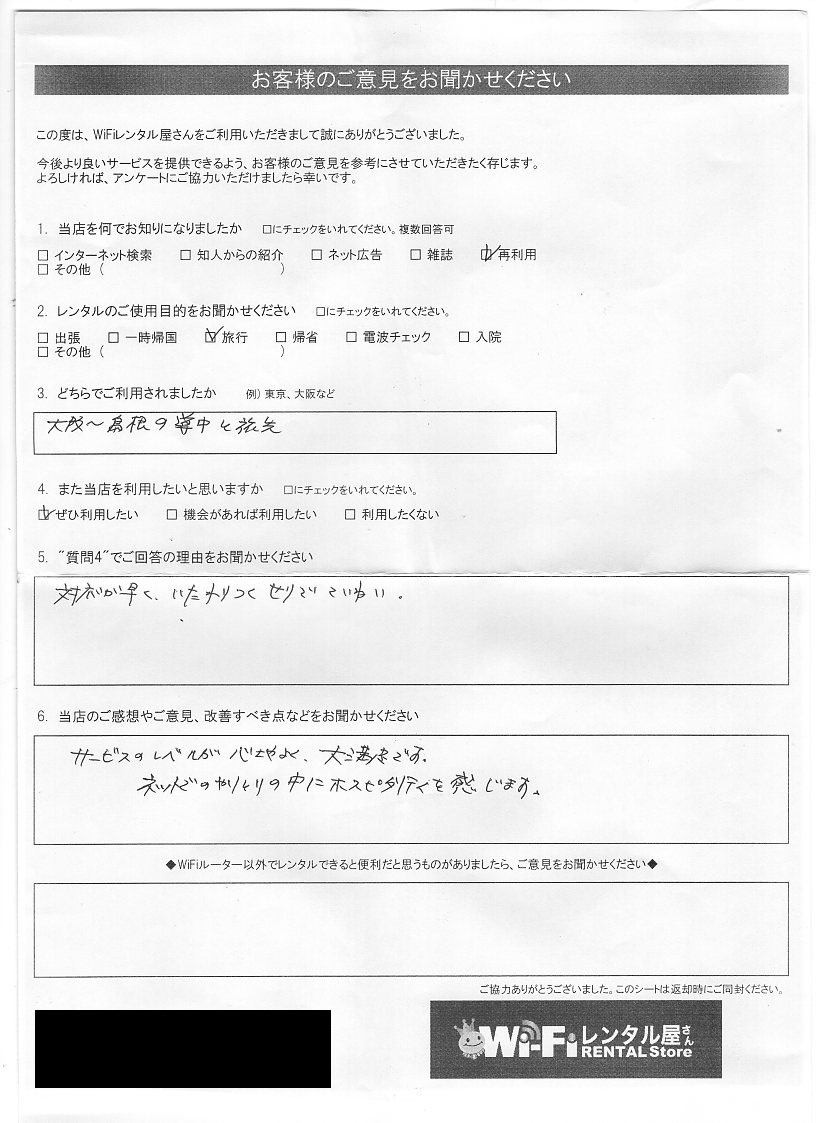 お客様のご意見をお聞かせください
この度は、WiFiレンタル屋さんをご利用いただきまして誠にありがとうございました。
今後より良いサービスを提供できるよう、お客様のご意見を参考にさせていただきたく存じます。
よろしければ、アンケートにご協力いただけましたら幸いです。
1. 当店を何でお知りになりましたか □にチェックをいれてください。複数回答可
□ インターネット検索 □ 知人からの紹介 □ ネット広告 □ 雑誌 ☑ 再利用
□ その他 ( )
2. レンタルのご使用目的をお聞かせください □にチェックをいれてください。
□ 出張 □ 一時帰国 ☑ 旅行 □ 帰省 □ 電波チェック □ 入院
□ その他 ( )
3. どちらでご利用されましたか 例) 東京、大阪など
大阪〜島根の道中と旅先
4. また当店を利用したいと思いますか □にチェックをいれてください。
☑ ぜひ利用したい □ 機会があれば利用したい □ 利用したくない
5. "質問4"でご回答の理由をお聞かせください
対応が早く、いたれりつくせりでていねい。
6. 当店のご感想やご意見、改善すべき点などをお聞かせください
サービスのレベルが心地よく、大満足です。
ネットでのやりとりの中にホスピタリティを感じます。
◆WiFiルーター以外でレンタルできると便利だと思うものがありましたら、ご意見をお聞かせください◆
ご協力ありがとうございました。このシートは返却時にご同封ください。
Wi-Fiレンタル屋さん
RENTAL Store